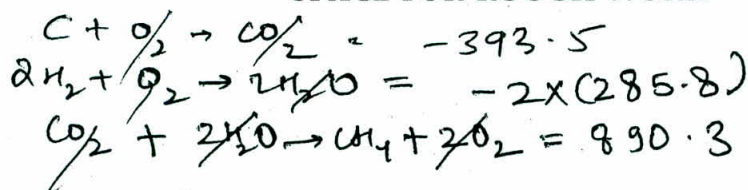 C + O2 → CO2 = -393.5
2H2 + O2 → 2H2O = -2x(285.8)
CO2 + 2H2O → CH4 + 2O2 = 890.3